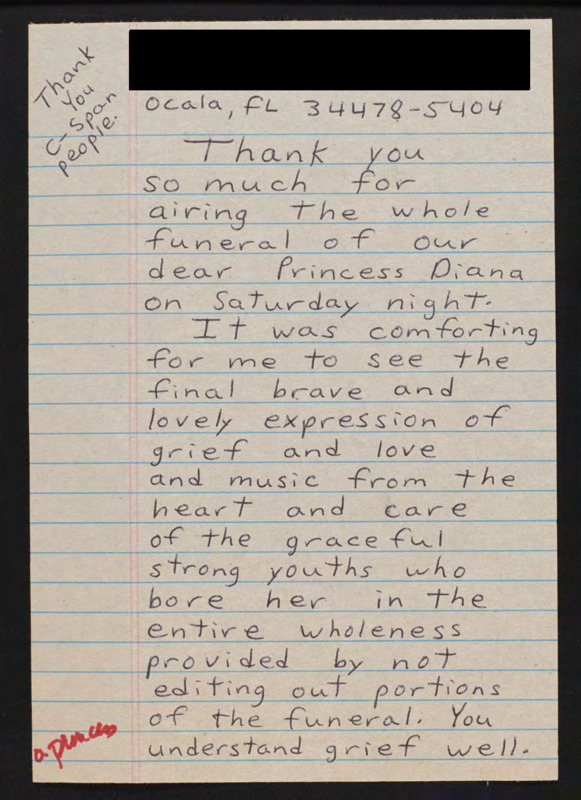 Thank
You
C-Span
people.
Ocala, FL 34478-5404
Thank you
so much for
airing the whole
funeral of our
dear Princess Diana
on Saturday night.
It was comforting
for me to see the
final brave and
lovely expression of
grief and love
and music from the
heart and care
of the graceful
strong youths who
bore her in the
entire wholeness
provided by not
editing out portions
of the funeral. You
understand grief well.